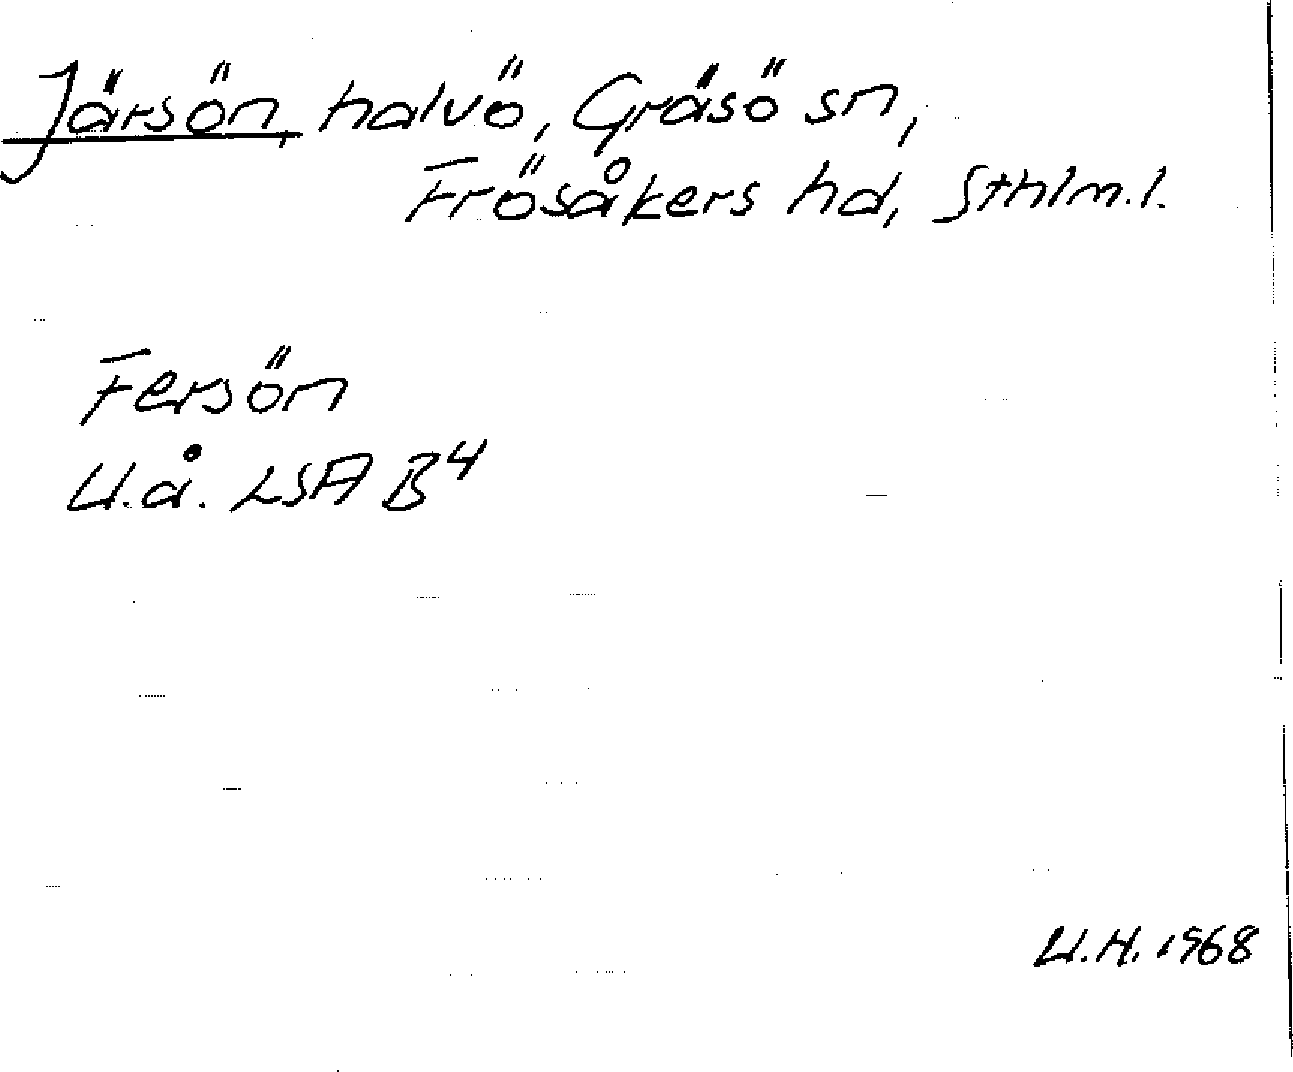 Järsön, halvö, Gräsö sn,
Frösåkers hd, Sthlm.l.
Fersön
U.å. LSA B4
U.H. 1968